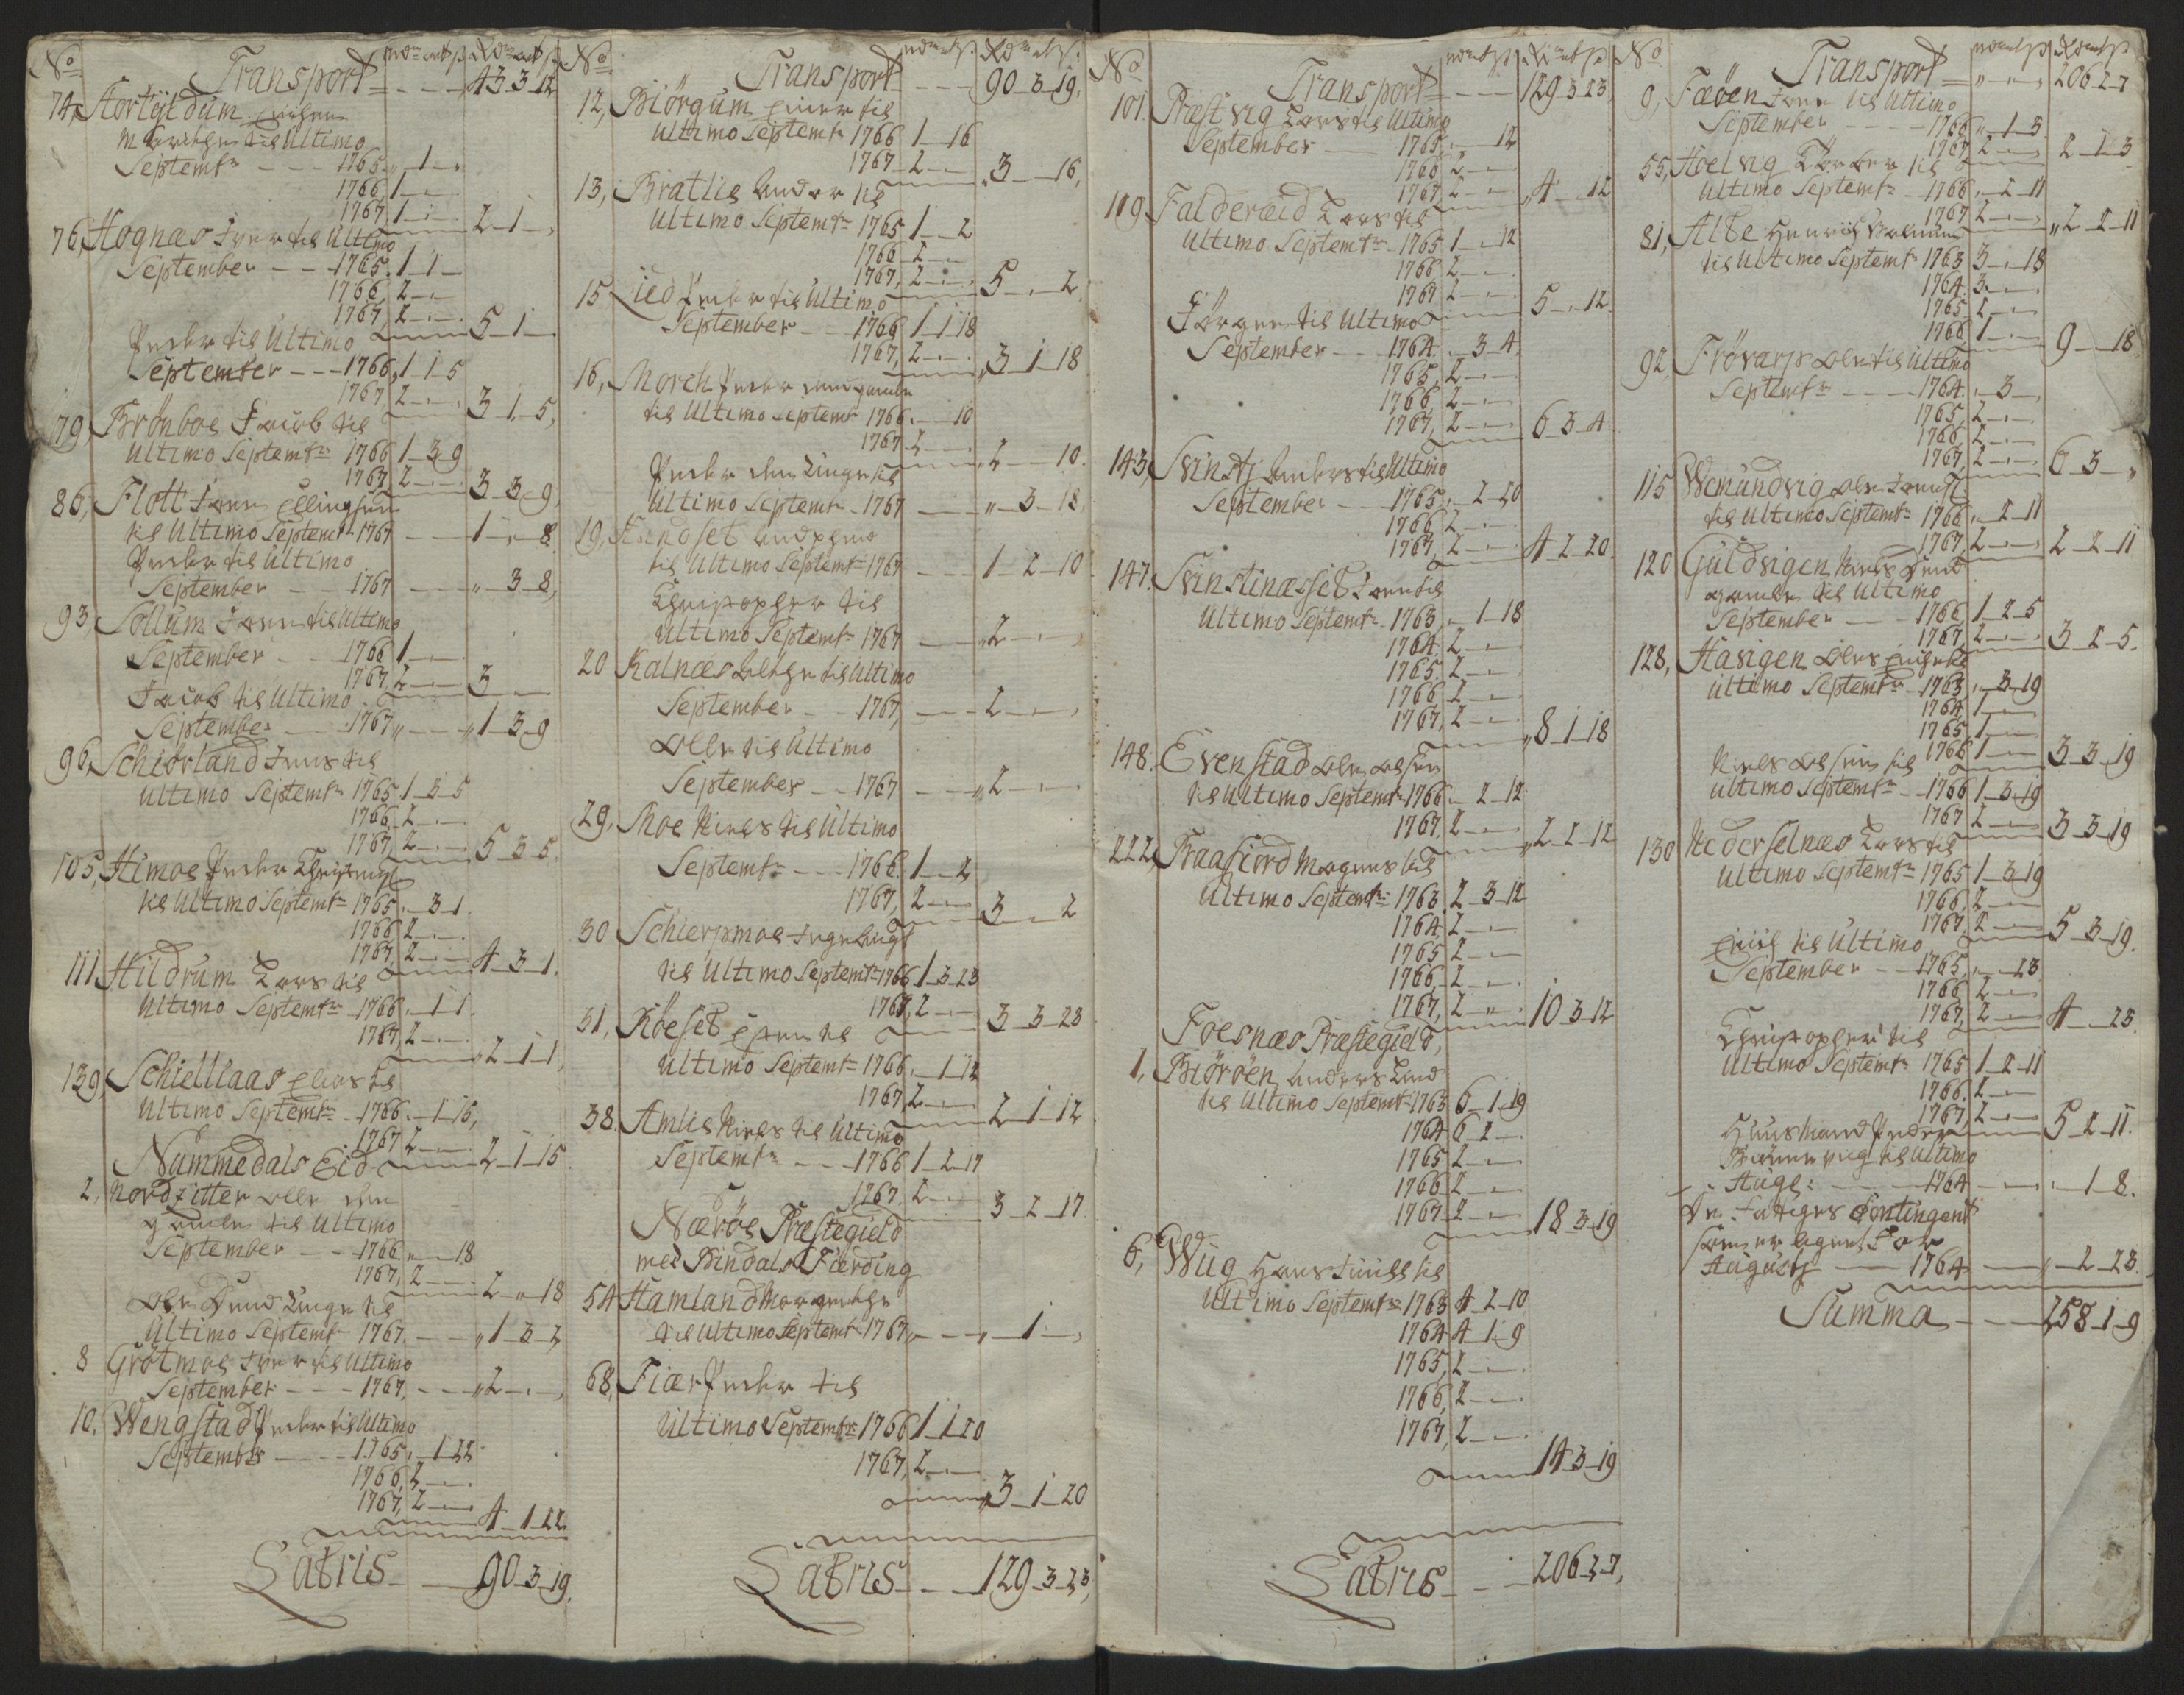 No
Transport 43-3-12
74, Stortÿldum
til Ultimo
Septembr 1765 " 1 "
1766 1
1767 1 2-1
76, Hognæs Iver til Ultimo
September 1765. 1-1
1766 2
1767 2 5-1
Peder til Ultimo
September 1766, 1-1-5
1767 2 3-1-5,
79, Brönboe Jacob til
Ultimo Septembr 1766 1-3-9
1767 2 3-3-9
86, Flott Ellingsen
til Ultimo Septembr 1767 1 " 8
Peder til Ultimo
September 1767 " 3-8,
93, Sollum til Ultimo
September 1766 1
1767, 2 3
Jacob til Ultimo
September 1767 " 1-3-9
96, Schiörland Jens til
Ultimo Septembr 1765 1-3-5
1766 2
1767 2 5-3-5.
105, Himoe Peder
til Ultimo Septembr 1765 " 3-1
1766 2
1767, 2 4-3-1.
111 Hildrum Lars til
Ultimo Septembr 1766 " 1-1
1767, 2 2-1-1,
139, Schiellaas Elias til
Ultimo Septembr 1766. 1-15,
1767 2 2-1-15
Nummedals Eid
2, Nordzitter Olle den
gamle til Ultimo
September 1766 18
1767, 2 2 " 18
Ole Dend Unge til
Ultimo Septembr 1767. " 1-3-2
8 Grötmoe Iver til Ultimo
September 1767, " 2
10. Wengstad Peder til Ultimo
September 1765, 1-22
1766, 2
1767, 2 4-1-22
Latris 90-3-19.
No
Transport 90-3-19.
12, Biörgum Einer til
Ultimo Septembr 1766 1-16
1767 2 3-16,
13, Bratlie Ander til
Ultimo Septembr 1765 1-2
1766 2
1767, 2 5-2
15 Lied Peder til Ultimo
September 1766 1-1-18
1767, 2 3-1-18
16, Morch Peder den gamle
til Ultimo Septembr 1766. 10
1767 2 2-10.
Peder den Unge til
Ultimo Septembr 1767 " 3-18,
19,
til Ultimo Septembr 1767 1-2-10
Christopher til
Ultimo Septembr 1767 2
20 Kalnæs til Ultimo
September 1767, 2
Olle til Ultimo
September 1767 " 2
29, Moe Niels til Ultimo
Septembr 1766. 1-2
1767, 2 3-2
30 Schierpmoe
til Ultimo Septembr 1766 1-3-23
1767, 2 3-3-23
31, Röeset til
Ultimo Septembr 1766. 1-12
1767, 2 2-1-12
38. Amlie Niels til Ultimo
Septembr 1766 1-2-17
1767. 2 3-2-17
Nærøe Præstegield
med Bindals Fierding
54 Hamland Margrethe
til Ultimo Septembr 1767, 1
68, Fiær Peder til
Ultimo Septembr 1766 1-1-20
1767, 2
3-1-20
Latris 129-3-23,
No
Transport 129-3-23
101. Præstvig Lars til Ultimo
September 1765 12
1766 2
1767, 2 4-12
119 Falderæid Lars til
Ultimo Septembr 1765 1-12
1766 2
1767 2 5-12.
Jörgen til Ultimo
September 1764. 3-4
1765, 2
1766, 2
1767, 2 6-3-4
143, Svinstj Anders til Ultimo
September 1765 2-20
1766 2
1767, 2 4-2-20.
147. Svinstinæsset til
Ultimo Septembr 1763 1-18
1764. 2
1765. 2
1766 2
1767, 2 8-1-18
148. Evenstad Ole Olsen
til Ultimo Septembr 1766 2-12
1767, 2 2-2-12
222, Fraafiord Magnus til
Ultimo Septembr 1763. 2-3-12
1764 2
1765 2
1766, 2
1767, 2 10-3-12
Foesnæs Præstegield,
1, Biöröen Anders Lund
til Ultimo Septembr 1763 6-1-19
1764 6-2
1765 2
1766 2
1767 2 18-3-19
6, Wiig Hans Juull til
Ultimo Septembr 1763 4-2-10
1764 4-1-9
1765, 2
1766, 2
1767, 2
14-3-19
Latris 206-2-7,
No
Transport 206-2-7
9, Fæöen til Ultimo
September 1766 1-3
1767, 2 2-1-3
55, Hoelvig til
Ultimo Septembr 1766 2-11
1767 2 2-2-11
81, Alte Henrich
til Ultimo Septembr 1763 3-18
1764. 3
1765 2
1766 1 9-18
92, Frövarp Ole til Ultimo
Septembr 1764. 3
1765, 2
1766, 2
1767, 2 6-3
115 Wemundvig Ole
til Ultimo Septembr 1766. 2-11
1767, 2 2-2-11
120 Guldvigen Niels Dend
gamle til Ultimo
September 1766, 1-2-5
1767, 2 3-2-5.
128, Hasvigen
Ultimo Septembr 1763 3-19
1764. 1
1765 1
1766 1 3-3-19
Niels Olsen til
Ultimo Septembr 1766 1-3-19
1767 2 3-3-19
130 Nederselnæs Lars til
Ultimo Septembr 1765 1-3-19
1766. 2
1767, 2 5-3-19.
til Ultimo
September 1765, 23
1766 2
1767, 2 4-23.
Christopher til
Ultimo Septembr 1765 1-2-11
1766. 2
1767, 2 5-2-11.
Huusmand Peder
til Ultimo
Aug: 1764 1-8.
De Fattiges Contingent
August 1764 " 2-23.
Summa 258-1-9